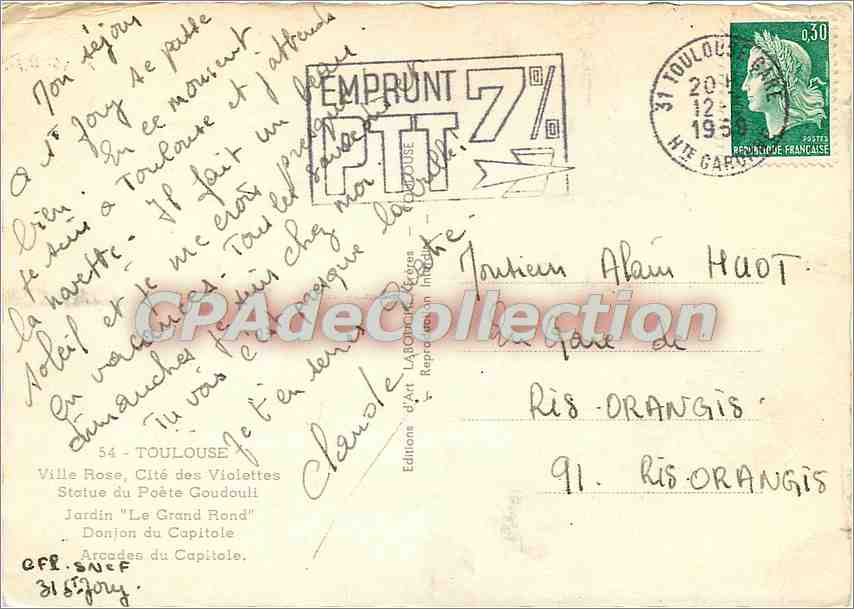 Mon séjour
a St Jory se passe
bien. En ce moment
je suis a Toulouse et j'attends
la navette. Il fait un beau
soleil et je me crois presque
en vacances. Tous les samedis et
dimanches je suis chez moi.
Tu vois c'est presque la belle.
Je t'en serre
Claude
54 - TOULOUSE
Ville Rose, Cité des Violettes
Statue du Poète Goudouli
Jardin "Le Grand Rond"
Donjon du Capitole
Arcades du Capitole.
CFP. SNCF
31 St Jory.
EMPRUNT
PTT 7%
31 TOULOUSE-GARE
20 H
12-
196
HTE GARONNE
0,30
POSTES
REPUBLIQUE FRANÇAISE
Editions d'Art LABOUCHE Frères - TOULOUSE
Reproduction Interdite
CPAdeCollection
Monsieur Alain HUOT.
en gare de
RIS-ORANGIS.
91. RIS-ORANGIS